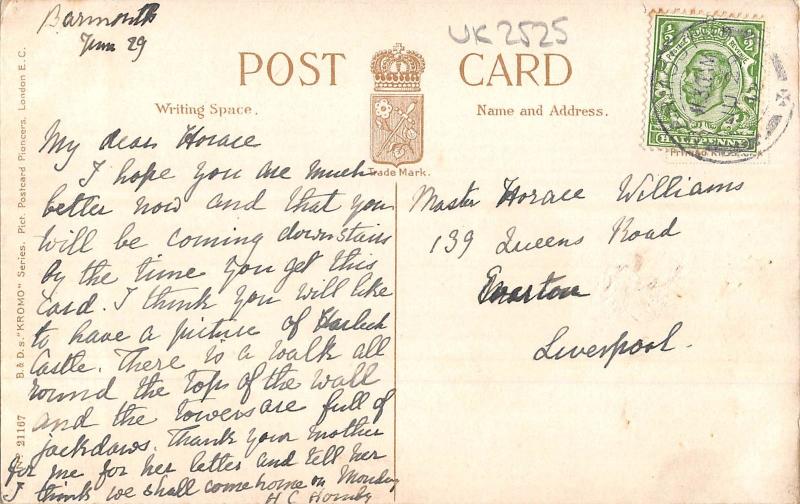 Barmouth
June 29
UK 2525
POST CARD
Writing Space.
Name and Address.
Trade Mark.
My dear Horace
I hope you are much
better now and that you
will be coming downstairs
by the time you get this
card. I think you will like
to have a picture of Harlech
Castle. There is a walk all
round the top of the wall
and the towers are full of
jackdaws. Thank your mother
for me for her letter and tell her
I think we shall come home on Monday
H C Hornby
Master Horace Williams
139 Queens Road
Everton
Liverpool.
B. & D.s "KROMO" Series. Pict. Postcard Pioneers. London E.C.
21167
½
½
POSTAGE REVENUE
HALFPENNY